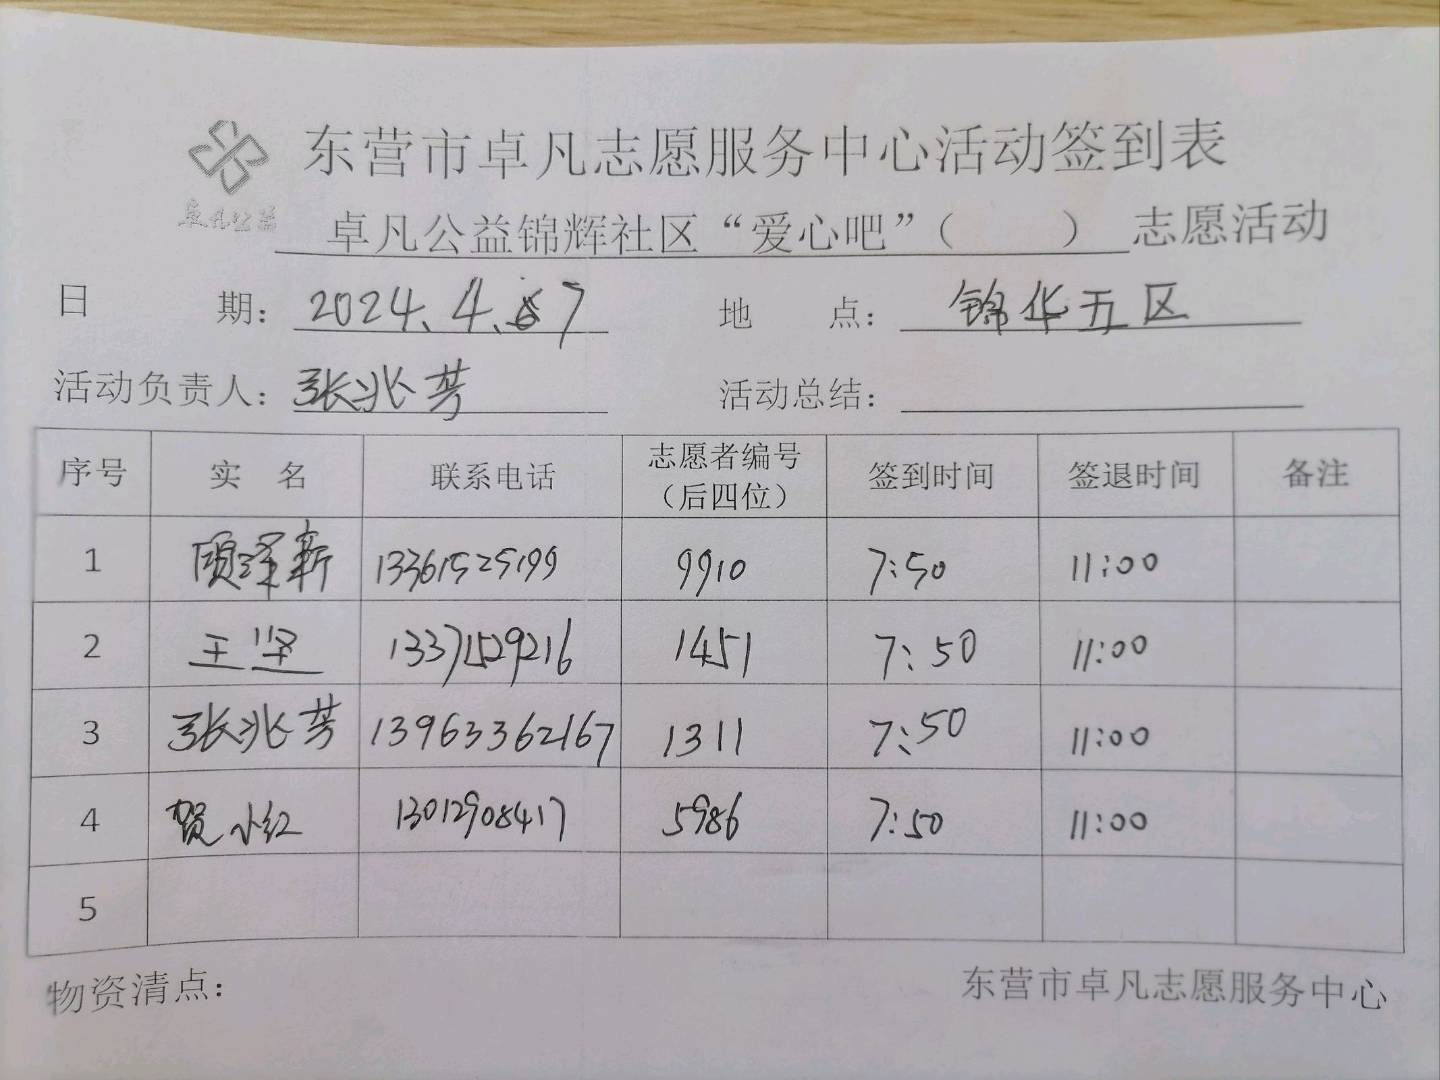 东营市卓凡志愿服务中心活动签到表
卓凡公益
卓凡公益锦辉社区“爱心吧”（ ）志愿活动
日 期：2024.4.7 地 点：锦华五区
活动负责人：张兆芳 活动总结：
序号 实 名 联系电话 志愿者编号（后四位） 签到时间 签退时间 备注
1 顾泽新 13361525199 9910 7:50 11:00
2 王坚 13371529216 1451 7:50 11:00
3 张兆芳 13963362167 1311 7:50 11:00
4 贺小红 13012908417 5986 7:50 11:00
5
物资清点： 东营市卓凡志愿服务中心